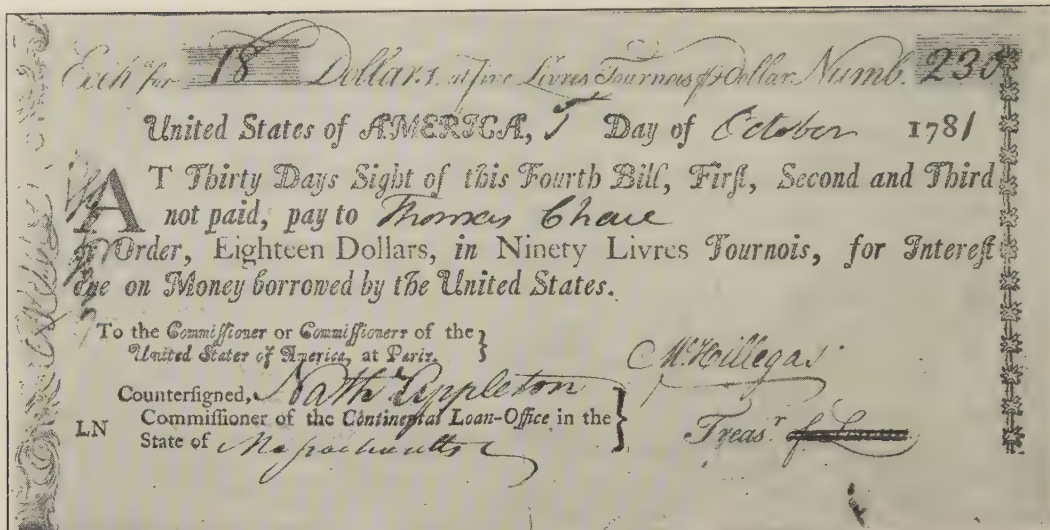 Exch.ᵃ for 18 Dollars, at five Livres Tournois ⅌ dollar. Numb. 230
United States of AMERICA, 5 Day of October 1781
AT Thirty Days Sight of this Fourth Bill, Firſt, Second and Third
not paid, pay to Thomas Chase
or Order, Eighteen Dollars, in Ninety Livres Tournois, for Intereſt
due on Money borrowed by the United States.
To the Commiſſioner or Commiſſioners of the
United States of America, at Paris.
M. Hillegas
Counterſigned, Nathl. Appleton
LN Commiſſioner of the Continental Loan-Office in the
State of Massachusetts
Treasʳ of